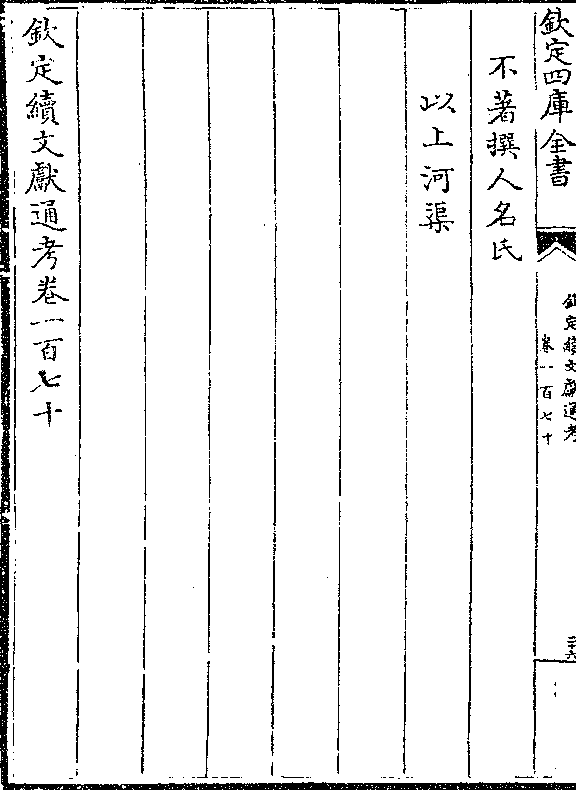 欽定四庫全書
欽定續文獻通考
卷一百七十
二十六
不著撰人名氏
以上河渠
欽定續文獻通考卷一百七十